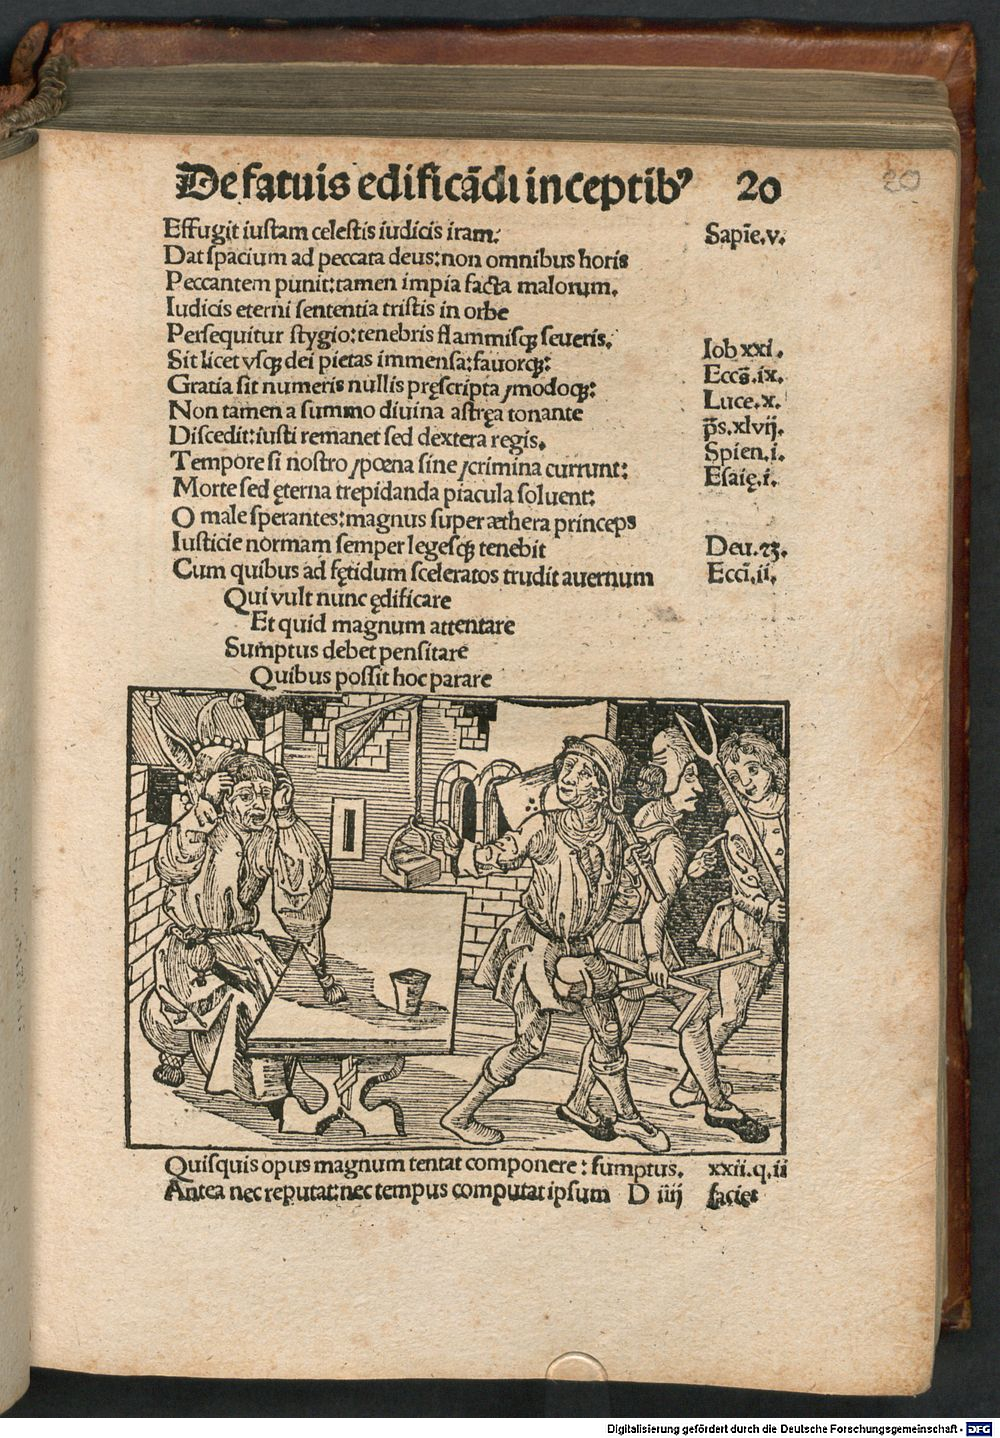 De fatuis edificādi inceptibꝰ 20
20
Effugit iustam celestis iudicis iram: Sapīe.v.
Dat spacium ad peccata deus:non omnibus horis
Peccantem punit:tamen impia facta malorum.
Iudicis eterni sententia tristis in orbe
Persequitur stygio:tenebris flammisqꝫ seueris.
Sit licet vsqꝫ dei pietas immensa:fauorqꝫ: Iob xxi.
Gratia sit numeris nullis pręscripta / modoqꝫ: Eccs̄.ix.
Non tamen a summo diuina astręa tonante Luce.x.
Discedit:iusti remanet sed dextera regis. p̄s.xlvij.
Tempore si nostro / pœna sine / crimina currunt: Spien.i.
Morte sed ęterna trepidanda piacula soluent: Esaię.i.
O male sperantes:magnus super æthera princeps
Iusticie normam semper legesqꝫ tenebit Deu.23.
Cum quibus ad fętidum sceleratos trudit auernum Eccī.ii.
Qui vult nunc ędificare
Et quid magnum attentare
Sumptus debet pensitare
Quibus possit hoc parare
Quisquis opus magnum tentat componere: sumptus. xxii.q.ii
Antea nec reputat:nec tempus computat ipsum D iiij faciet
Digitalisierung gefördert durch die Deutsche Forschungsgemeinschaft - DFG